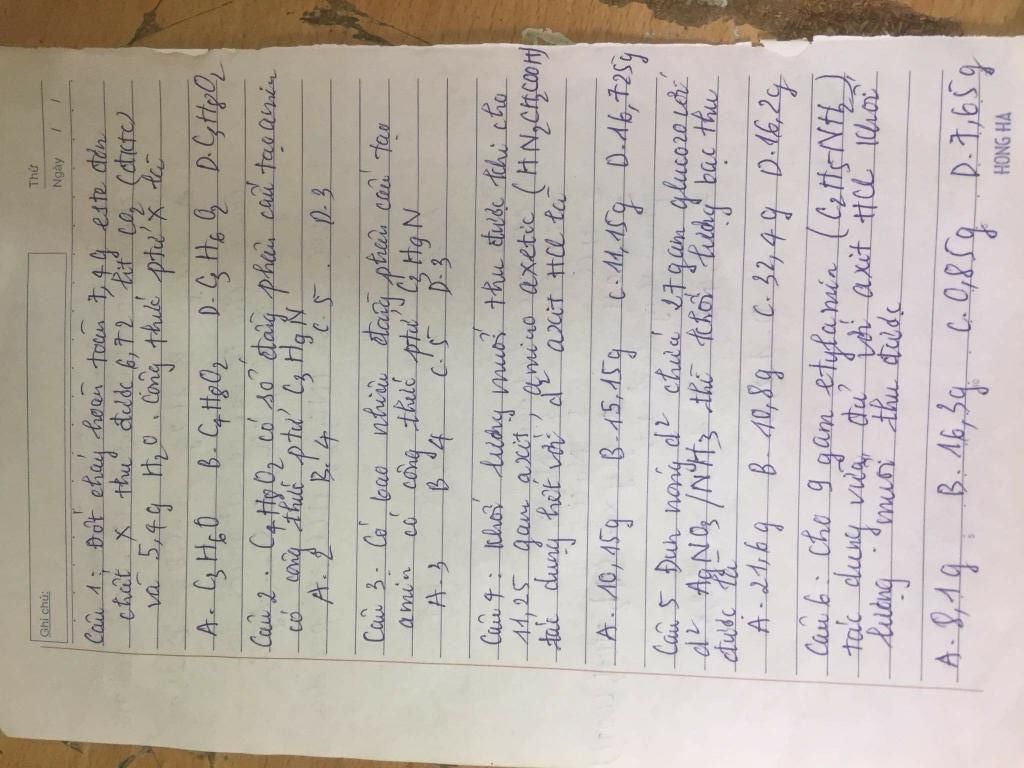 Thứ
Ngày / /
Ghi chú:
Câu 1: Đốt cháy hoàn toàn 7,4g este đơn
chất X thu được 6,72 lít CO2 (đktc)
và 5,4g H2O. Công thức ptử X là
A. C3H6O B. C4H8O2 D. C3H6O2 D. C3H8O2
Câu 2. C4H8O2 có số đồng phân cấu tạo amin
có công thức ptử C3H9N
A. 2 B. 4 C. 5 D. 3
Câu 3. Có bao nhiêu đồng phân cấu tạo
amin có công thức ptử C3H9N
A. 3 B 4 C. 5 D. 3
Câu 4: Khối lượng muối thu được khi cho
11,25 gam axit, amino axetic (HN2CH2COOH)
tác dụng hết với d2 axit HCl là
A. 10,15g B. 15,15g C. 11,15g D. 16,725g
Câu 5 Đun nóng d2 chứa 27 gam glucozơ với
d2 AgNO3/NH3 thì khối lượng bạc thu
được là
A. 21,6g B. 10,8g C. 32,4g D. 16,2g
Câu 6: Cho 9 gam etylamin (C2H5-NH2)
tác dụng vừa, đủ với axit HCl khối
lượng muối thu được
A. 8,1g B. 16,3g C. 0,85g D. 7,65g
HONG HA